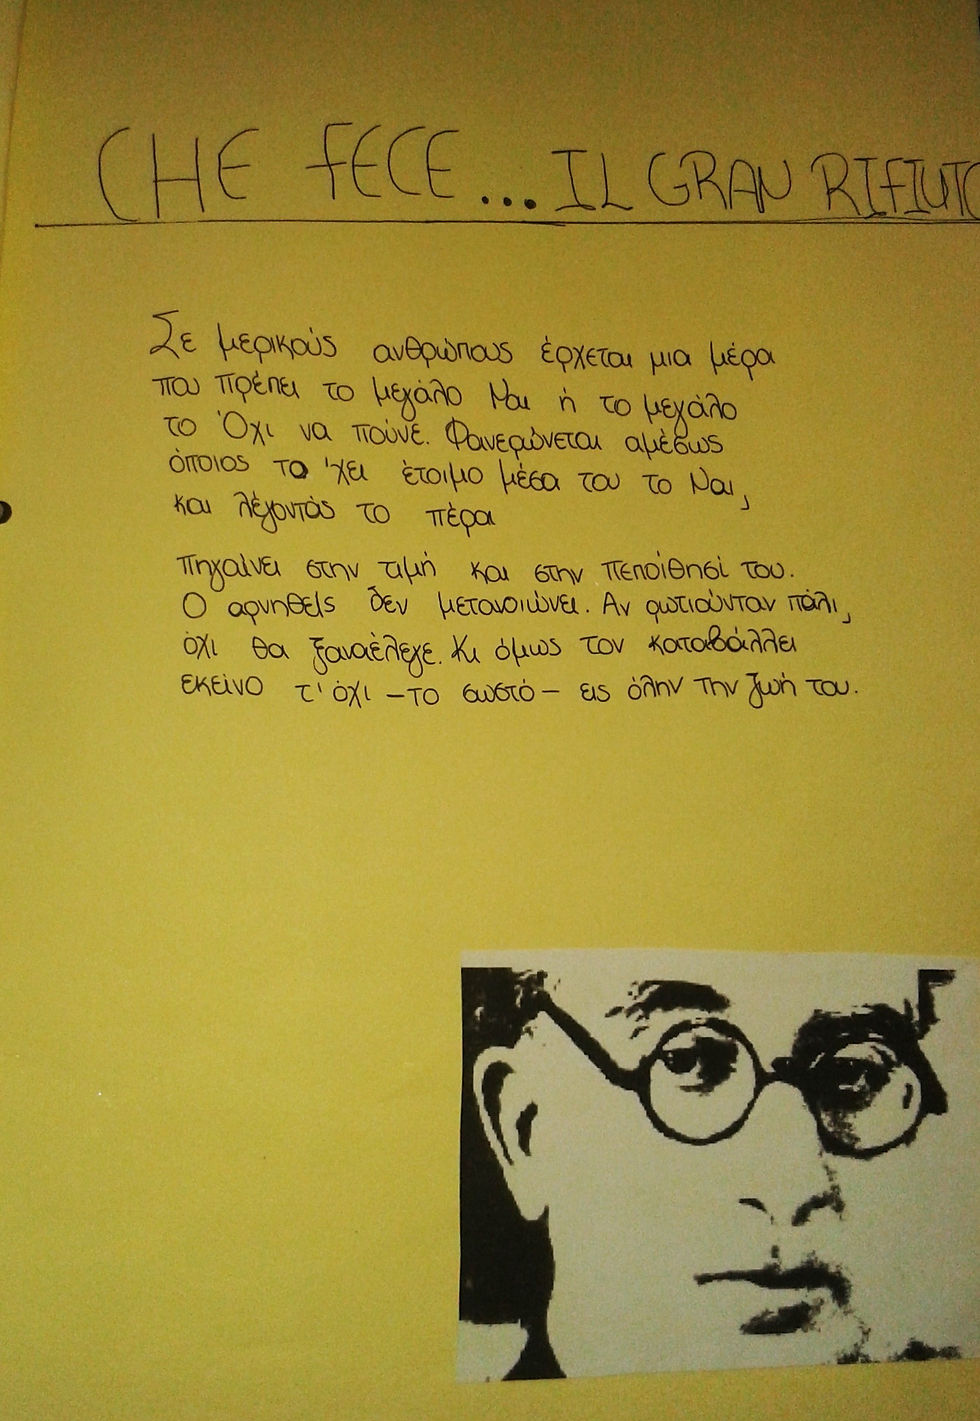 CHE FECE... IL GRAN RIFIUTO
Σε μερικούς ανθρώπους έρχεται μια μέρα
που πρέπει το μεγάλο Ναι ή το μεγάλο
το Όχι να πούνε. Φανερώνεται αμέσως
όποιος το 'χει έτοιμο μέσα του το Ναι,
και λέγοντάς το πέρα
πηγαίνει στην τιμή και στην πεποίθησί του.
Ο αρνηθείς δεν μετανοιώνει. Αν ρωτιούνταν πάλι,
όχι θα ξαναέλεγε. Κι όμως τον καταβάλλει
εκείνο τ' όχι -το σωστό- εις όλην την ζωή του.